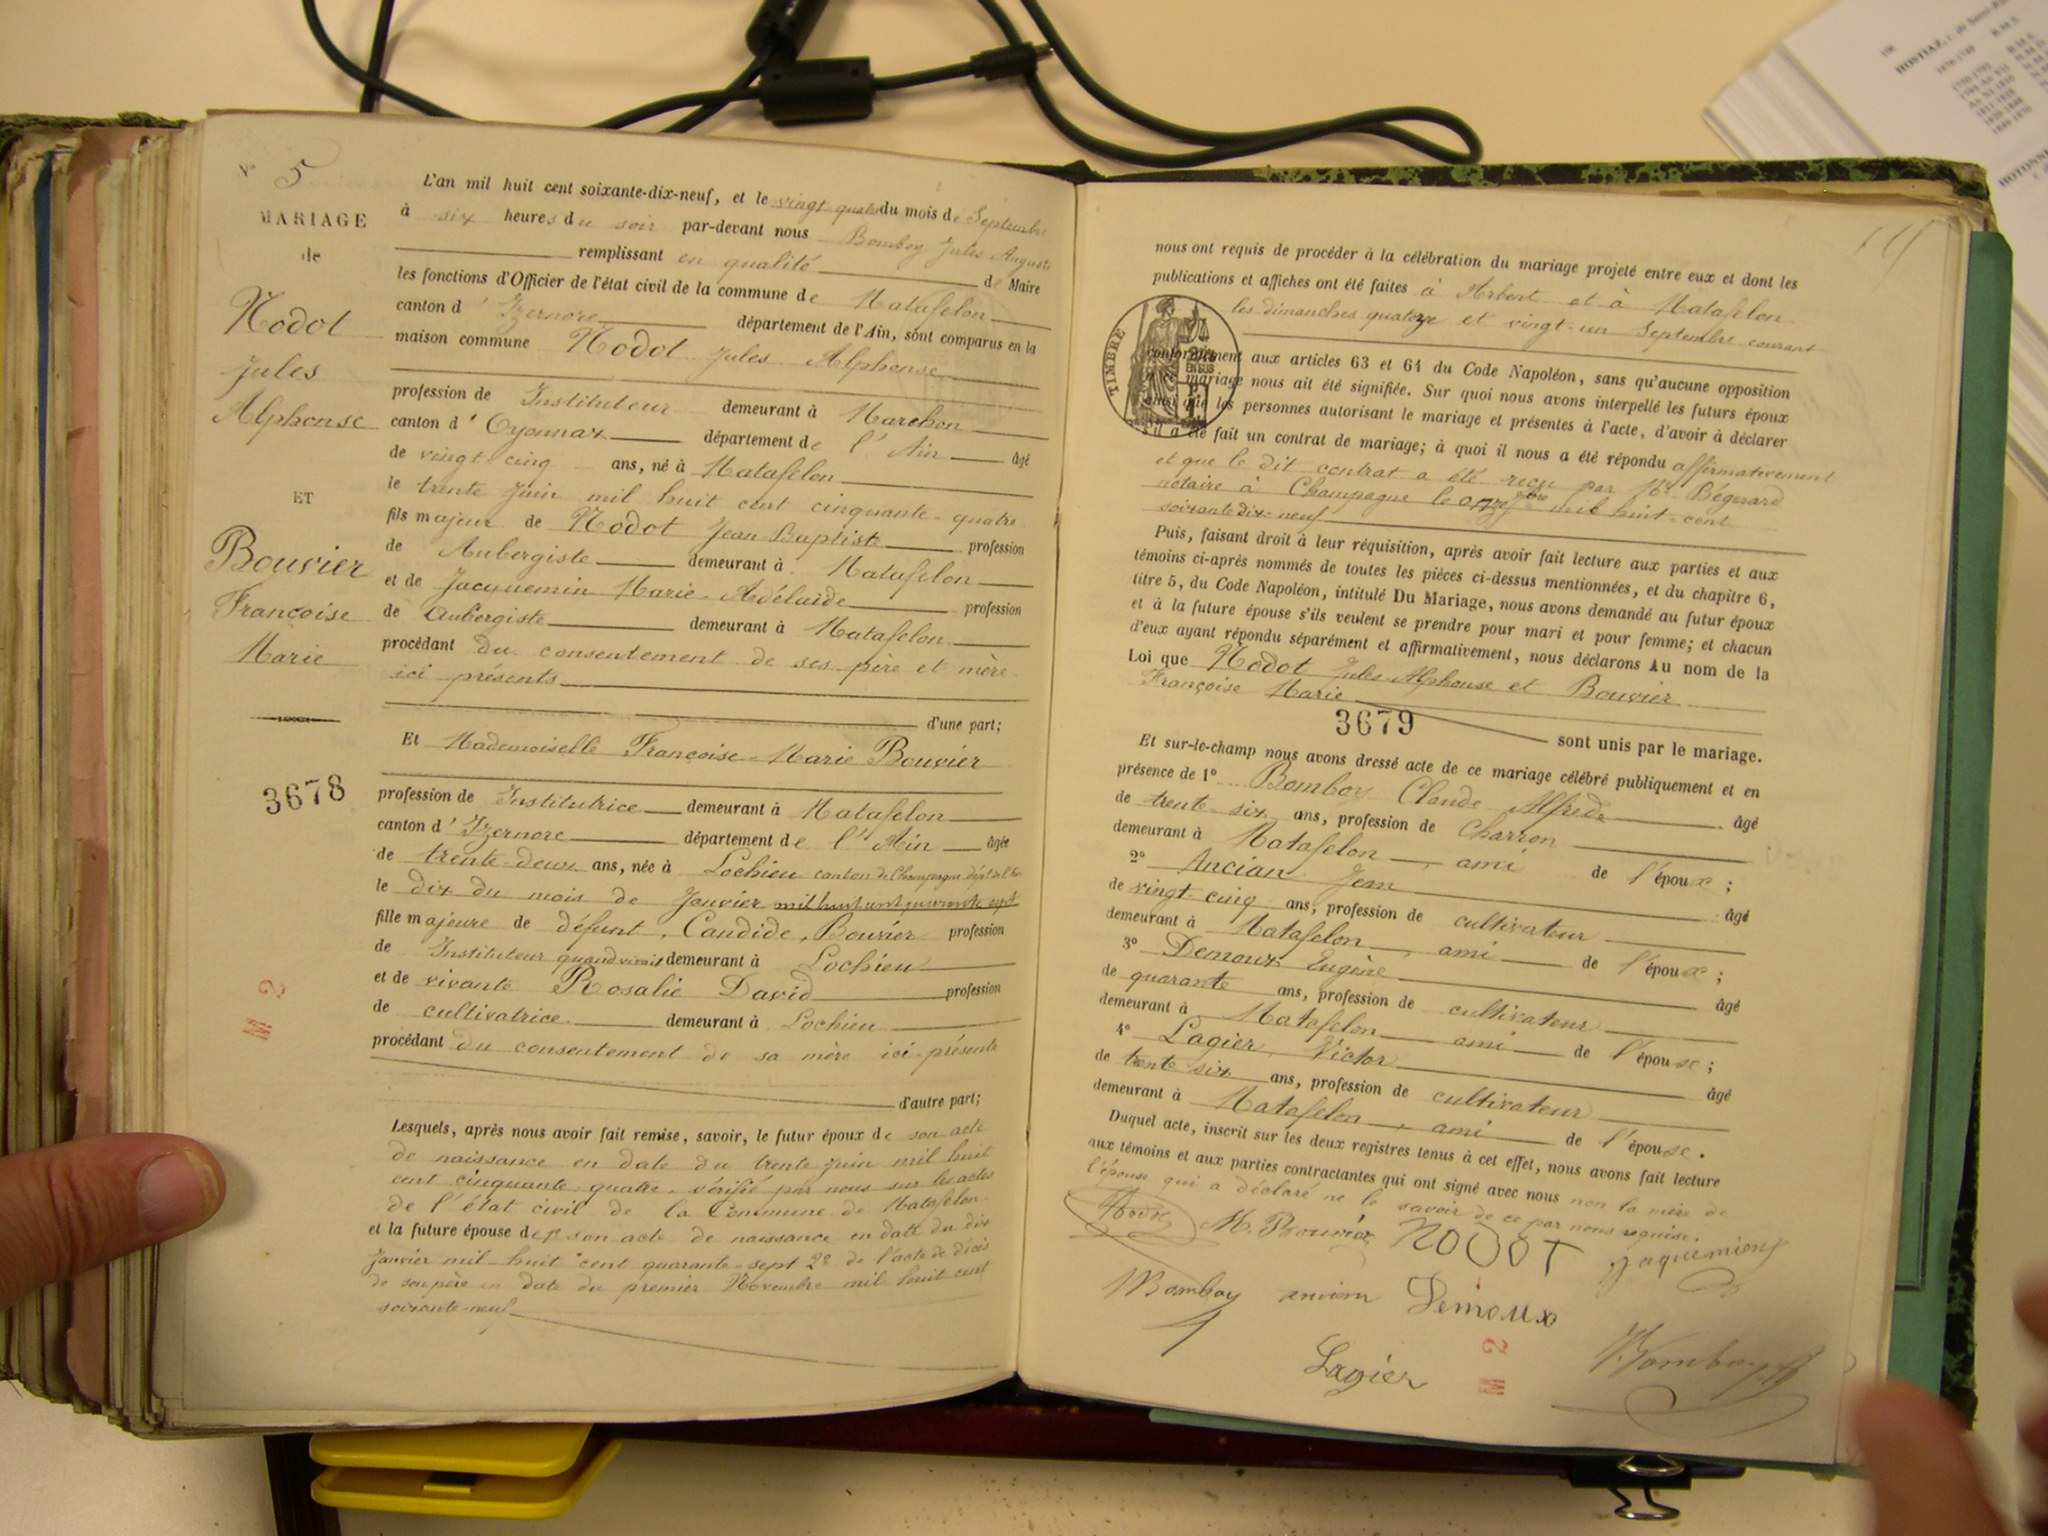 N° 5
MARIAGE
de
Nodot
Jules
Alphonse
ET
Bouvier
Françoise
Marie
3678
L'an mil huit cent soixante-dix-neuf, et le vingt quatre du mois de Septembre
à six heures du soir par-devant nous Bomboy Jules Auguste
remplissant en qualité de Maire
les fonctions d'Officier de l'état civil de la commune de Matafelon
canton d'Izernore département de l'Ain, sont comparus en la
maison commune Nodot Jules Alphonse
profession de Instituteur demeurant à Marchon
canton d'Oyonnax département de l'Ain âgé
de vingt-cinq ans, né à Matafelon
le trente Juin mil huit cent cinquante-quatre
fils majeur de Nodot Jean Baptiste profession
de Aubergiste demeurant à Matafelon
et de Jacquemin Marie-Adélaïde profession
de Aubergiste demeurant à Matafelon
procédant du consentement de ses père et mère
ici présents
d'une part;
Et Mademoiselle Françoise-Marie Bouvier
profession de Institutrice demeurant à Matafelon
canton d'Izernore département de l'Ain âgée
de trente-deux ans, née à Lochieu canton de Champagne dépt de l'Ain
le dix du mois de Janvier mil huit cent quarante sept
fille majeure de défunt Candide Bouvier profession
de Instituteur quand vivait demeurant à Lochieu
et de vivante Rosalie David profession
de cultivatrice demeurant à Lochieu
procédant du consentement de sa mère ici présente
d'autre part;
Lesquels, après nous avoir fait remise, savoir, le futur époux de son acte
de naissance en date du trente Juin mil huit
cent cinquante quatre, vérifié par nous sur les actes
de l'état civil de la Commune de Matafelon
et la future épouse de 1° son acte de naissance en date du dix
Janvier mil huit cent quarante-sept 2° de l'acte de décès
de son père en date du premier Novembre mil huit cent
soixante-neuf
nous ont requis de procéder à la célébration du mariage projeté entre eux et dont les
publications et affiches ont été faites à Arbent et à Matafelon
les dimanches quatorze et vingt-un Septembre courant
TIMBRE
conformément aux articles 63 et 64 du Code Napoléon, sans qu'aucune opposition
à ce mariage nous ait été signifiée. Sur quoi nous avons interpellé les futurs époux
ainsi que les personnes autorisant le mariage et présentes à l'acte, d'avoir à déclarer
s'il a été fait un contrat de mariage; à quoi il nous a été répondu affirmativement
et que le dit contrat a été reçu par Me Béguerd
notaire à Champagne le onze 7bre mil huit-cent
soixante dix-neuf
Puis, faisant droit à leur réquisition, après avoir fait lecture aux parties et aux
témoins ci-après nommés de toutes les pièces ci-dessus mentionnées, et du chapitre 6,
titre 5, du Code Napoléon, intitulé Du Mariage, nous avons demandé au futur époux
et à la future épouse s'ils veulent se prendre pour mari et pour femme; et chacun
d'eux ayant répondu séparément et affirmativement, nous déclarons Au nom de la
Loi que Nodot Jules Alphonse et Bouvier
Françoise Marie
3679
sont unis par le mariage.
Et sur-le-champ nous avons dressé acte de ce mariage célébré publiquement et en
présence de 1° Bomboy Claude Alfred âgé
de trente six ans, profession de Charron
demeurant à Matafelon, ami de l'époux;
2° Ancian Jean âgé
de vingt-cinq ans, profession de cultivateur
demeurant à Matafelon, ami de l'époux;
3° Demoux Eugène âgé
de quarante ans, profession de cultivateur
demeurant à Matafelon ami de l'épouse;
4° Lagier Victor âgé
de trente six ans, profession de cultivateur
demeurant à Matafelon, ami de l'épouse.
Duquel acte, inscrit sur les deux registres tenus à cet effet, nous avons fait lecture
aux témoins et aux parties contractantes qui ont signé avec nous non la mère de
l'épouse qui a déclaré ne le savoir de ce par nous requise.
Nodot M. Bouvier NODOT Jaquemin
Bomboy ancian Demoux
Lagier Bomboy
HOSTIAZ